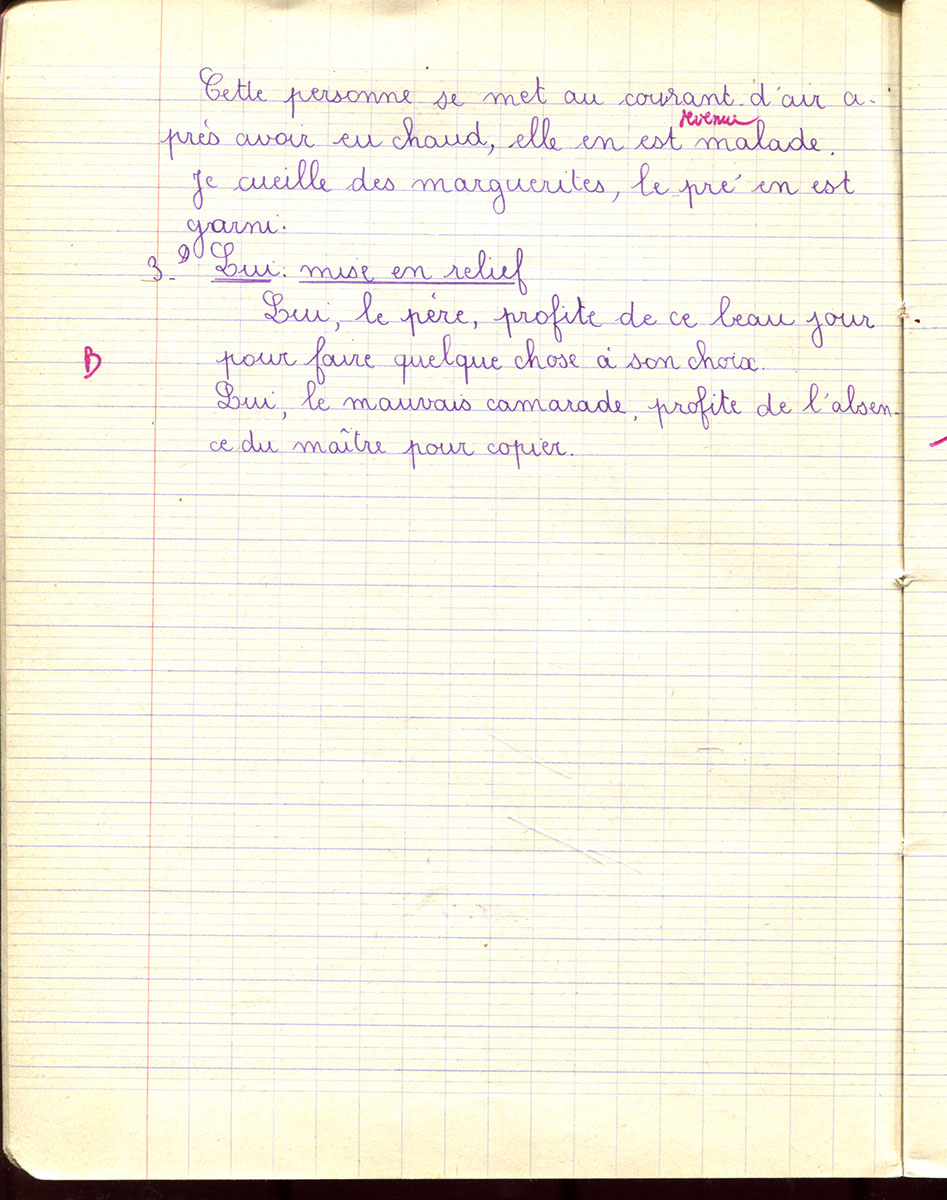 Cette personne se met au courant d'air a-
revenue
près avoir eu chaud, elle en est malade.
Je cueille des marguerites, le pré en est
garni.
3-° Lui: mise en relief
Lui, le père, profite de ce beau jour
B pour faire quelque chose à son choix.
Lui, le mauvais camarade, profite de l'absen-
ce du maître pour copier.